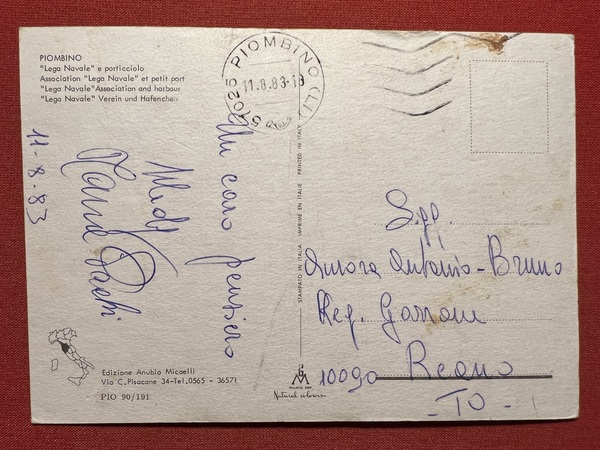 PIOMBINO
"Lega Navale" e porticciolo
Association "Lega Navale" et petit port
"Lega Navale" Association and harbour
"Lega Navale" Verein und Hafenchen
57025 PIOMBINO (LI)
11.8.83-18
11-8-83
Un caro pensiero
STAMPATO IN ITALIA IMPRIMÉ EN ITALIE PRINTED IN ITALY
Sigg.
Aurora Antonio-Bruno
Reg.
10090 Reano
-TO-
Edizione Anubio Micaelli
Via C. Pisacane 34-Tel. 0565 - 36571
PIO 90/191
Natural colours